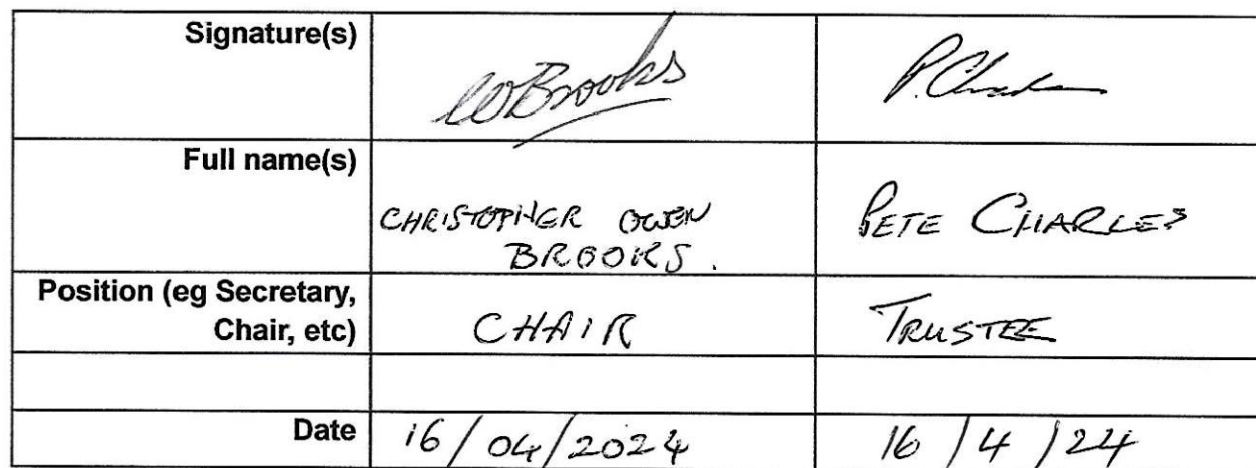 Signature(s) COBrooks P.Charles
Full name(s)
CHRISTOPHER OWEN PETE CHARLES
BROOKS.
Position (eg Secretary,
Chair, etc) CHAIR TRUSTEE
Date 16/04/2024 16/4/24